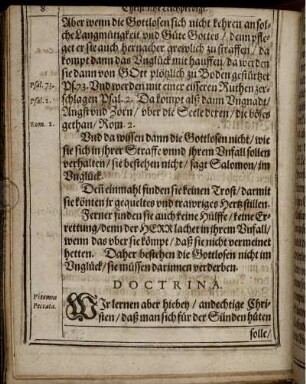 8 Christliche Leichpredigt.
Aber wenn die Gottlosen sich nicht kehren an sol-
che Langmütigkeit vnd Güte Gottes / denn pfle-
get er sie auch hernacher grewlich zu straffen / da
kompt dann das Vnglück mit hauffen / da werden
sie dann von GOtt plötzlich zu Boden gestürtzet
Psal. 73.
Ps. 73. Vnd werden mit einer eisern Ruthen zer-
Psal. 2.
schlagen Psal. 2. Da kompt als dann Vngnad /
Angst vnd Zorn / über die Seele deren / die böses
Rom. 2.
gethan / Rom. 2.
Vnd da wissen dann die Gottlosen nicht / wie
sie sich in jhrer Straffe vnnd jhrem Vnfall sollen
verhalten / sie bestehen nicht / sagt Salomon / im
Vnglück.
Den einmahl finden sie keinen Trost / darmit
sie könten jr gequeltes vnd trawriges Hertz stillen.
Ferner finden sie auch keine Hülffe / keine Er-
rettung / denn der HERR lachet in jhrem Vnfall /
wenn das vber sie kömpt / daß sie nicht vermeinet
hetten. Daher bestehen die Gottlosen nicht im
Vnglück / sie müssen darinnen verderben.
DOCTRINA.
Vitanda
Peccata.
WIr lernen aber hiebey / andechtige Chri-
sten / daß man sich für der Sünden hüten
solle /